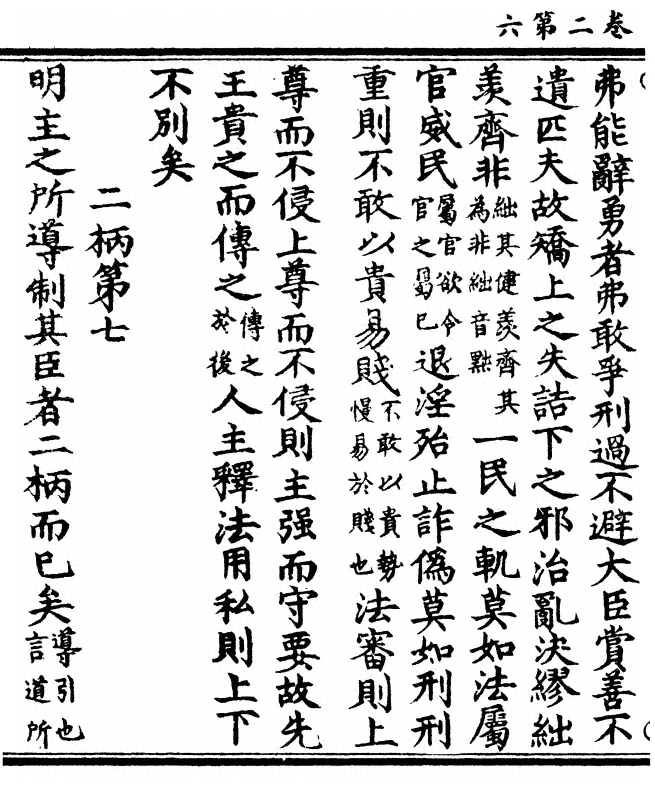 卷二第六
弗能辭勇者弗敢爭刑過不避大臣賞善不
遺匹夫故矯上之失詰下之邪治亂決繆絀
羨齊非絀其健羨齊其為非絀音黜一民之軌莫如法屬
官威民屬官欲令官之屬已退淫殆止詐僞莫如刑刑
重則不敢以貴易賤不敢以貴勢慢易於賤也法審則上
尊而不侵上尊而不侵則主强而守要故先
王貴之而傳之傳之於後人主釋法用私則上下
不別矣
二柄第七
明主之所導制其臣者二柄而已矣導引也言道所